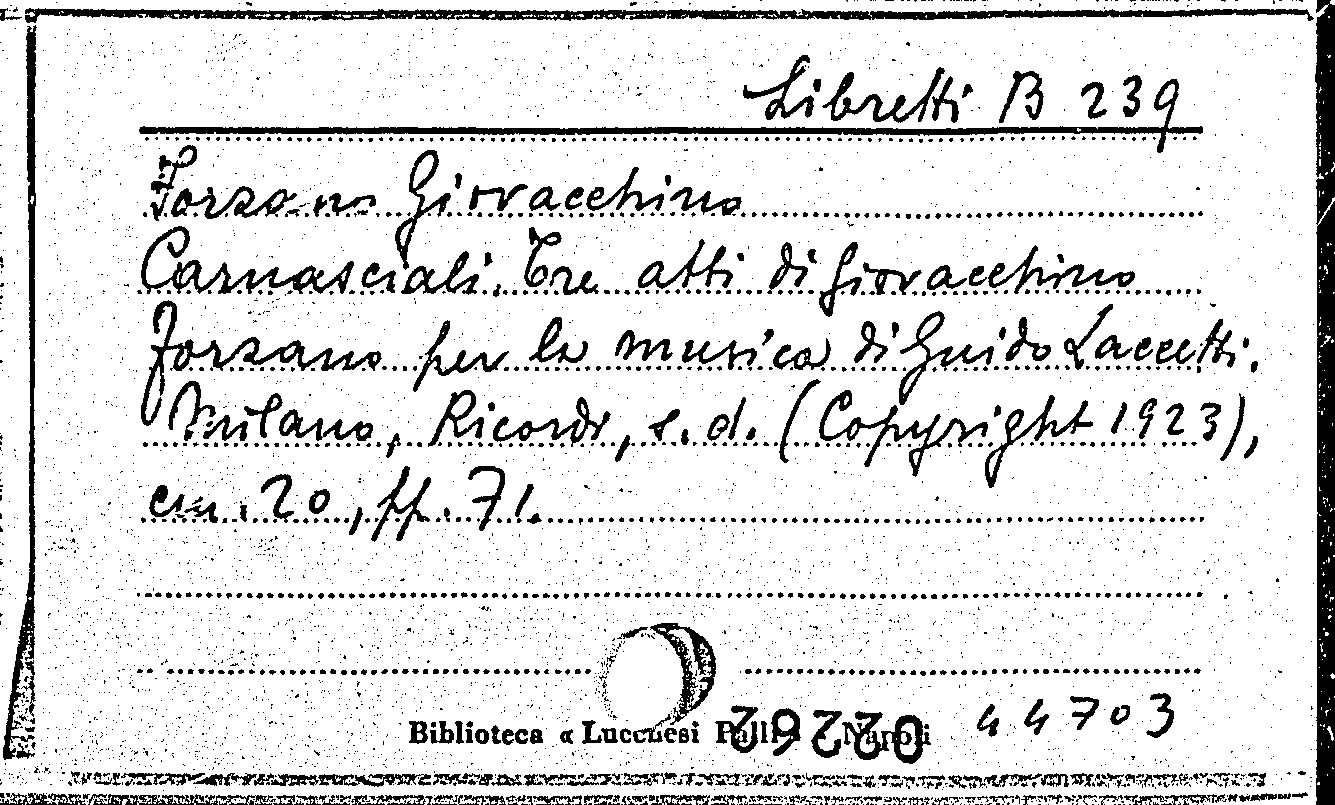 Libretti B 239
Forzano Giovacchino
Carnasciali. Tre atti di Giovacchino
Forzano per la musica di Guido Laccetti.
Milano, Ricordi, s.d. (Copyright 1923),
cm. 20, pp. 71.
Biblioteca « Lucchesi Palli » Napoli
44703